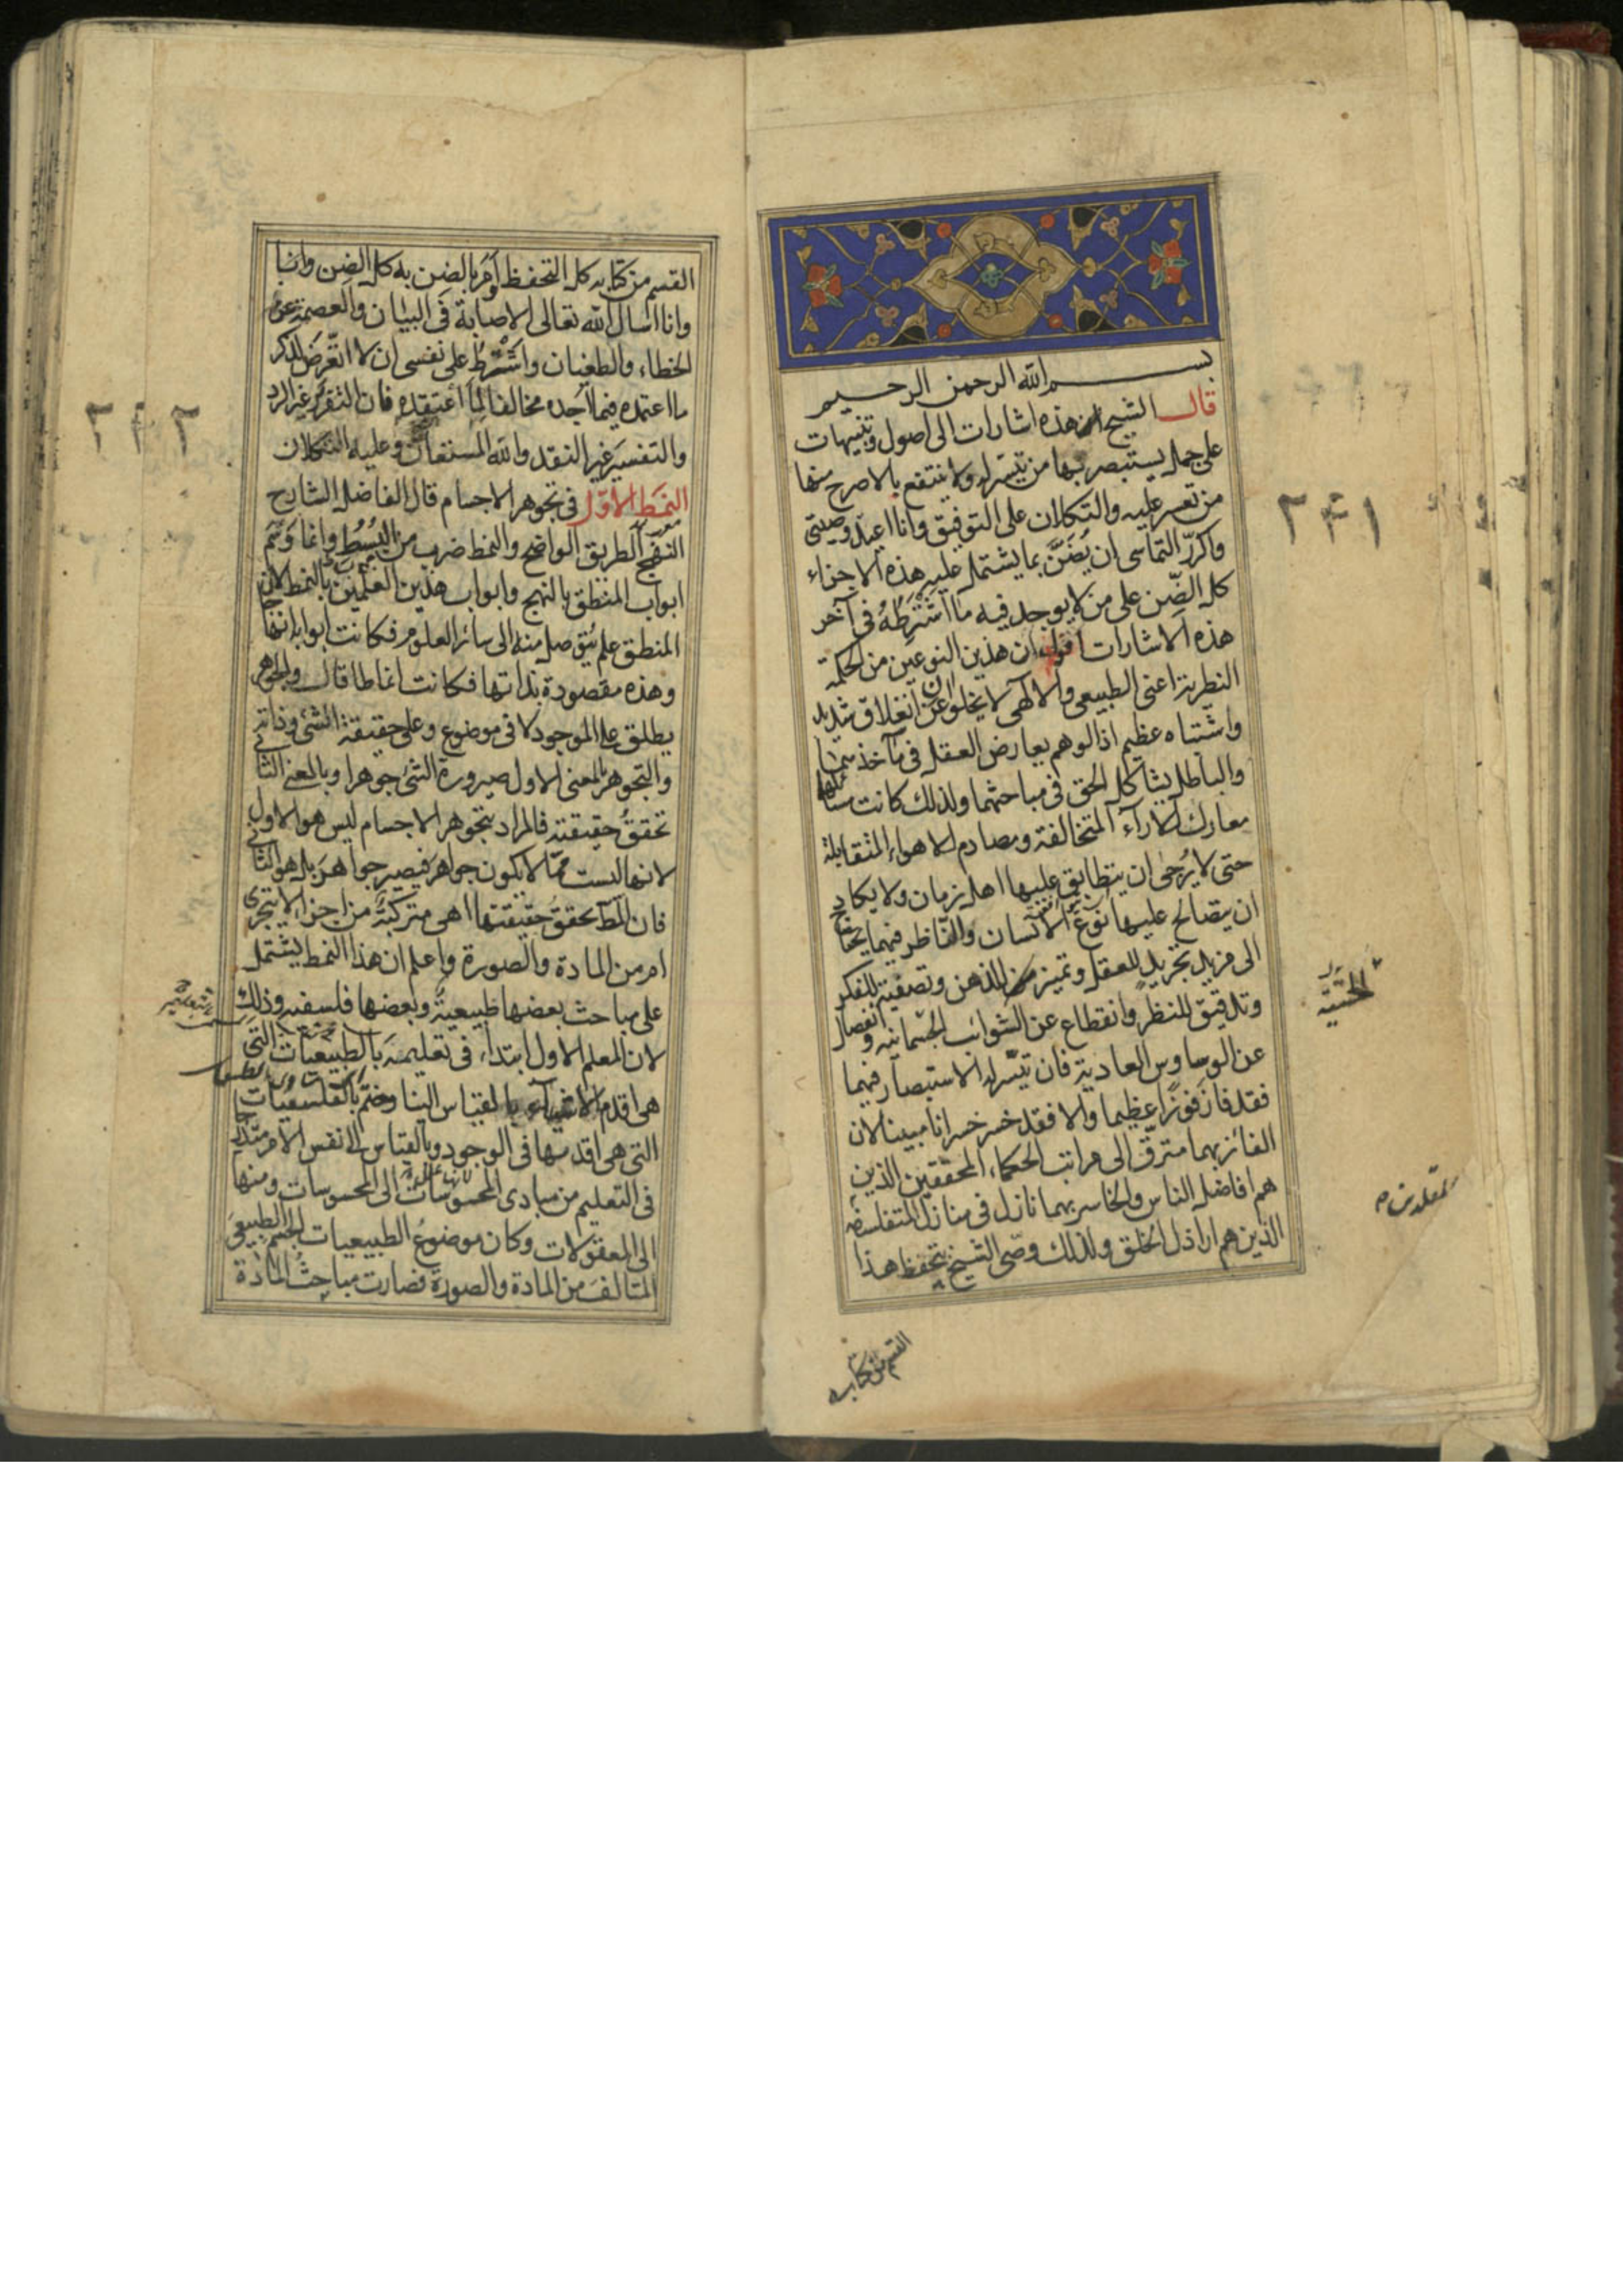 بسم الله الرحمن الرحيم
قال الشيخ هذه اشارات الى اصول وتنبيهات
على جمل يستبصر بها من تيسر له ولا ينتفع بالاصرح منها
من تعسر عليه والتكلان على التوفيق وانا اعيد وصيتى
واكرر التماسى ان يضن بما يشتمل عليه هذه الاجزاء
كل الضن على من لا يوجد فيه ما اشترطه فى آخر
هذه الاشارات اقول ان هذين النوعين من الحكمة
النظرية اعنى الطبيعى والالهى لا يخلوان عن انغلاق شديد
واشتباه عظيم اذ الوهم يعارض العقل فى مآخذهما
والباطل يشاكل الحق فى مباحثهما ولذلك كانت مسائلهما
معارك الآراء المتخالفة ومصادم الاهواء المتقابلة
حتى لا يرجى ان يتطابق عليها اهل زمان ولا يكاد
ان يتصالح عليها نوع الانسان والناظر فيهما يحتاج
الى مزيد تجريد للعقل وتميز للذهن وتصفية للفكر
وتدقيق للنظر وانقطاع عن الشوائب الجسمانية وانفصال
الحسية
عن الوساوس العادية فان تيسر له الاستبصار فيهما
فقد فاز فوزا عظيما والا فقد خسر خسرانا مبينا لان
الفائز بهما مترق الى مراتب الحكماء المحققين الذين
هم افاضل الناس والخاسر بهما نازل فى منازل المتفلسفة
الذين هم اراذل الخلق ولذلك وصى الشيخ بتحفظ هذا
القسم من كتابه
٢٤١
القسم من كتابه كل التحفظ وامر بالضن به كل الضن وانا
وانا اسال الله تعالى الاصابة فى البيان والعصمة عن
الخطاء والطغيان واشترط على نفسى ان لا اتعرض لذكر
ما اعتمده فيما اجده مخالفا لما اعتقده فان التقرير غير الرد
والتفسير غير النقد والله المستعان وعليه التكلان
النمط الاول فى تجوهر الاجسام قال الفاضل الشارح
النهج الطريق الواضح والنمط ضرب من البسط وانما وسم
ابواب المنطق بالنهج وابواب هذين العلمين بالنمط لان
المنطق علم يتوصل منه الى سائر العلوم فكانت ابوابه انهاجا
وهذه مقصودة بذاتها فكانت انماطا قال والجوهر
يطلق على الموجود لا فى موضوع وعلى حقيقة الشئ وذاته
والتجوهر بالمعنى الاول صيرورة الشئ جوهرا وبالمعنى الثانى
تحقق حقيقته فالمراد بتجوهر الاجسام ليس هو الاول
لانها ليست مما لا يكون جواهر فيصير جواهر بل هو الثانى
فان المط تحقق حقيقتها اهى متركبة من اجزاء لا يتجزى
ام من المادة والصورة واعلم ان هذا النمط يشتمل
على مباحث بعضها طبيعية وبعضها فلسفية وذلك
لان المعلم الاول ابتداء فى تعليمه بالطبيعيات التى
هى اقدم الاشياء بالقياس الينا وختم بالفلسفيات
التى هى اقدمها فى الوجود وبالقياس الى نفس الامر متدرجا
فى التعليم من مبادى المحسوسات الى المحسوسات ومنها
الى المعقولات وكان موضوع الطبيعيات الجسم الطبيعى
المتالف من المادة والصورة فصارت مباحث المادة